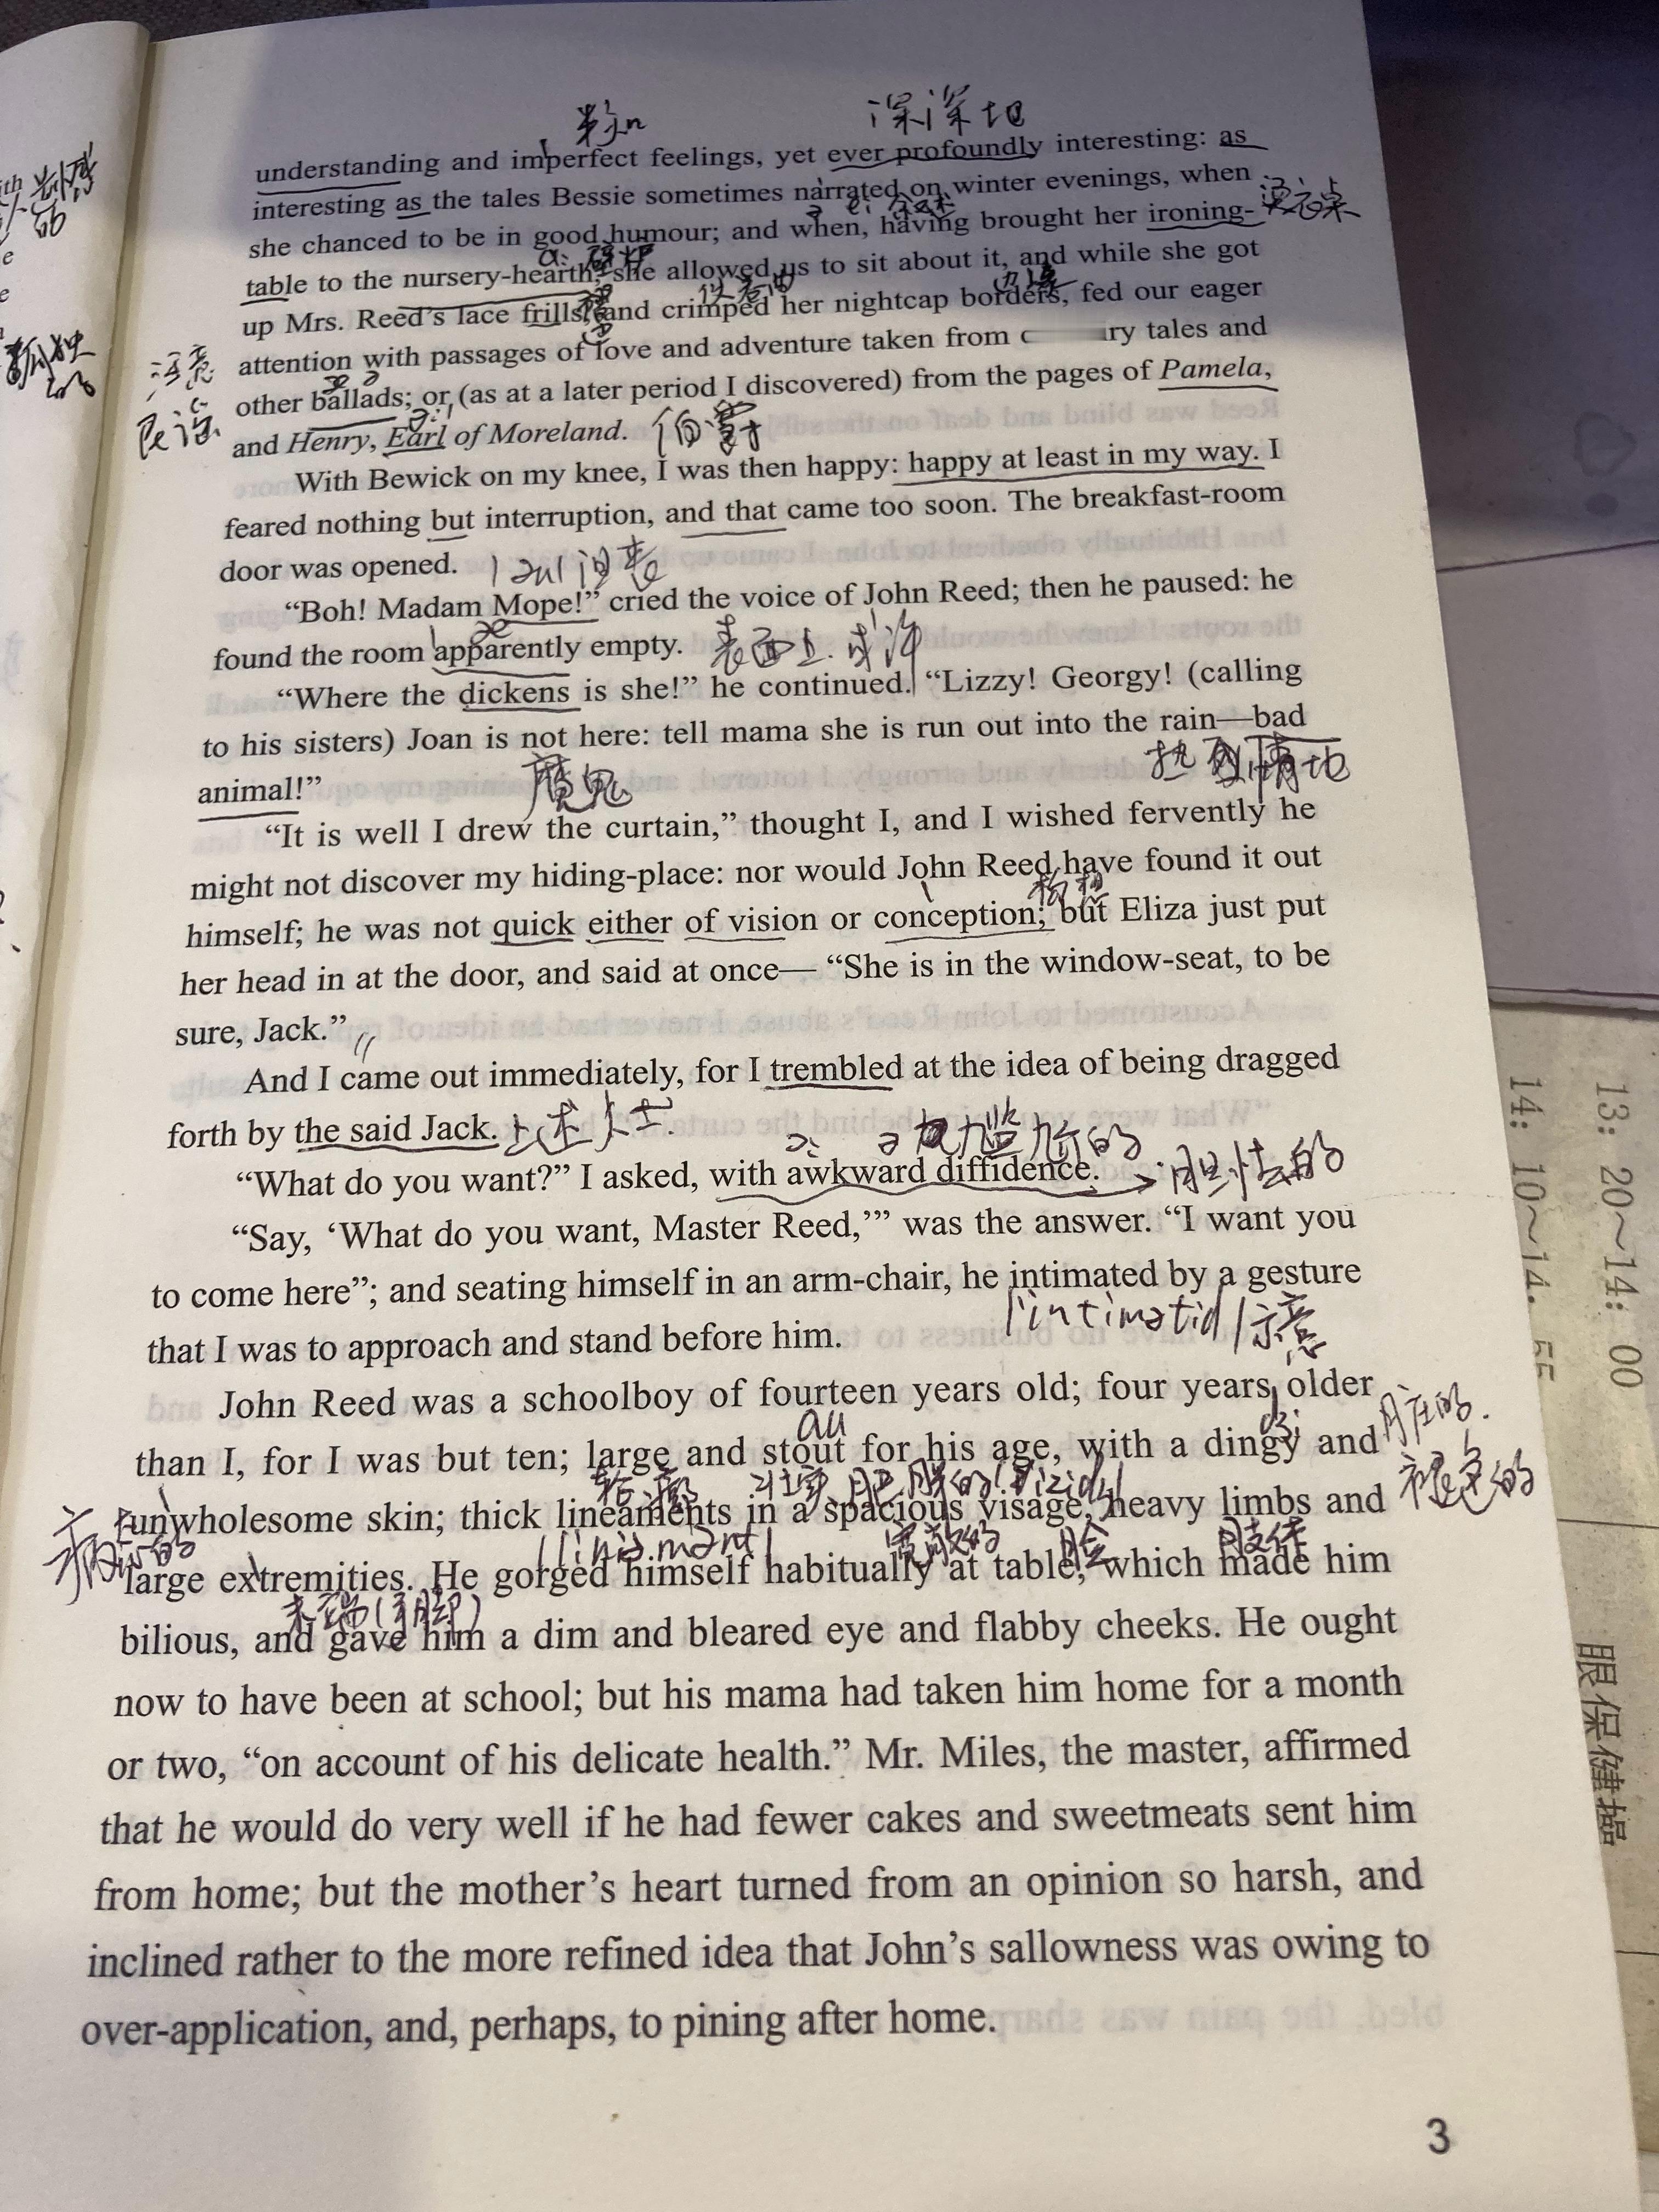 深深地
understanding and imperfect feelings, yet ever profoundly interesting: as
interesting as the tales Bessie sometimes narrated on winter evenings, when
she chanced to be in good humour; and when, having brought her ironing-
table to the nursery-hearth, she allowed us to sit about it, and while she got
up Mrs. Reed's lace frills, and crimped her nightcap borders, fed our eager
注意
attention with passages of love and adventure taken from ry tales and
other ballads; or (as at a later period I discovered) from the pages of Pamela,
民谣
and Henry, Earl of Moreland. 伯爵
With Bewick on my knee, I was then happy: happy at least in my way. I
feared nothing but interruption, and that came too soon. The breakfast-room
door was opened.
“Boh! Madam Mope!” cried the voice of John Reed; then he paused: he
found the room apparently empty. 表面上.或许
“Where the dickens is she!” he continued. “Lizzy! Georgy! (calling
to his sisters) Joan is not here: tell mama she is run out into the rain—bad
animal!” 魔鬼 热烈情地
“It is well I drew the curtain,” thought I, and I wished fervently he
might not discover my hiding-place: nor would John Reed have found it out
构想
himself; he was not quick either of vision or conception; but Eliza just put
her head in at the door, and said at once— “She is in the window-seat, to be
sure, Jack.”
And I came out immediately, for I trembled at the idea of being dragged
forth by the said Jack. 上述人士.
“What do you want?” I asked, with awkward diffidence. 胆怯的
“Say, ‘What do you want, Master Reed,’” was the answer. “I want you
to come here”; and seating himself in an arm-chair, he intimated by a gesture
示意
that I was to approach and stand before him.
John Reed was a schoolboy of fourteen years old; four years older
au
than I, for I was but ten; large and stout for his age, with a dingy and
壮实
unwholesome skin; thick lineaments in a spacious visage, heavy limbs and
宽敞的 脸 肢体
large extremities. He gorged himself habitually at table, which made him
末端(手脚)
bilious, and gave him a dim and bleared eye and flabby cheeks. He ought
now to have been at school; but his mama had taken him home for a month
or two, “on account of his delicate health.” Mr. Miles, the master, affirmed
that he would do very well if he had fewer cakes and sweetmeats sent him
from home; but the mother’s heart turned from an opinion so harsh, and
inclined rather to the more refined idea that John’s sallowness was owing to
over-application, and, perhaps, to pining after home.
3
13: 20～14: 00
14: 10～14: 55
眼保健操